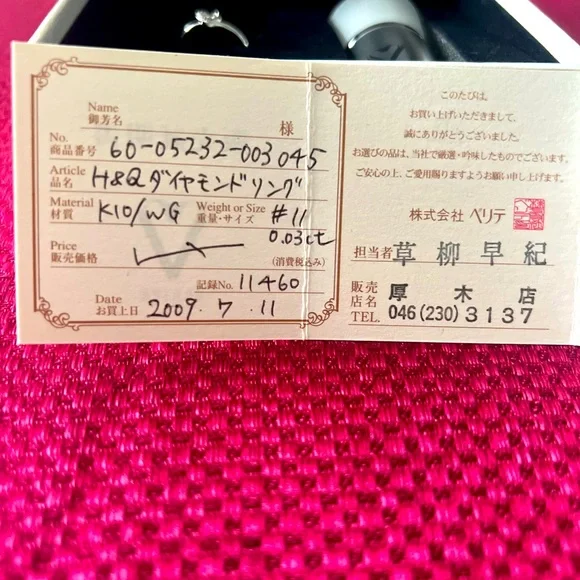 Name
御芳名 様
No.
商品番号 60-05232-003045
Article
品名 H&Qダイヤモンドリング
Material Weight or Size
材質 K10/WG 重量・サイズ #11
0.03ct
Price
販売価格 (消費税込み)
記録No. 11460
Date
お買上日 2009. 7. 11
このたびは、
お買い上げいただきまして、
誠にありがとうございました。
お選びの品は、当社で厳選・吟味したものでございます。
ご安心の上、ご愛用賜りますようお願い申し上げます。
株式会社 ベリテ
担当者 草柳早紀
販売
店名 厚木店
TEL. 046(230)3137